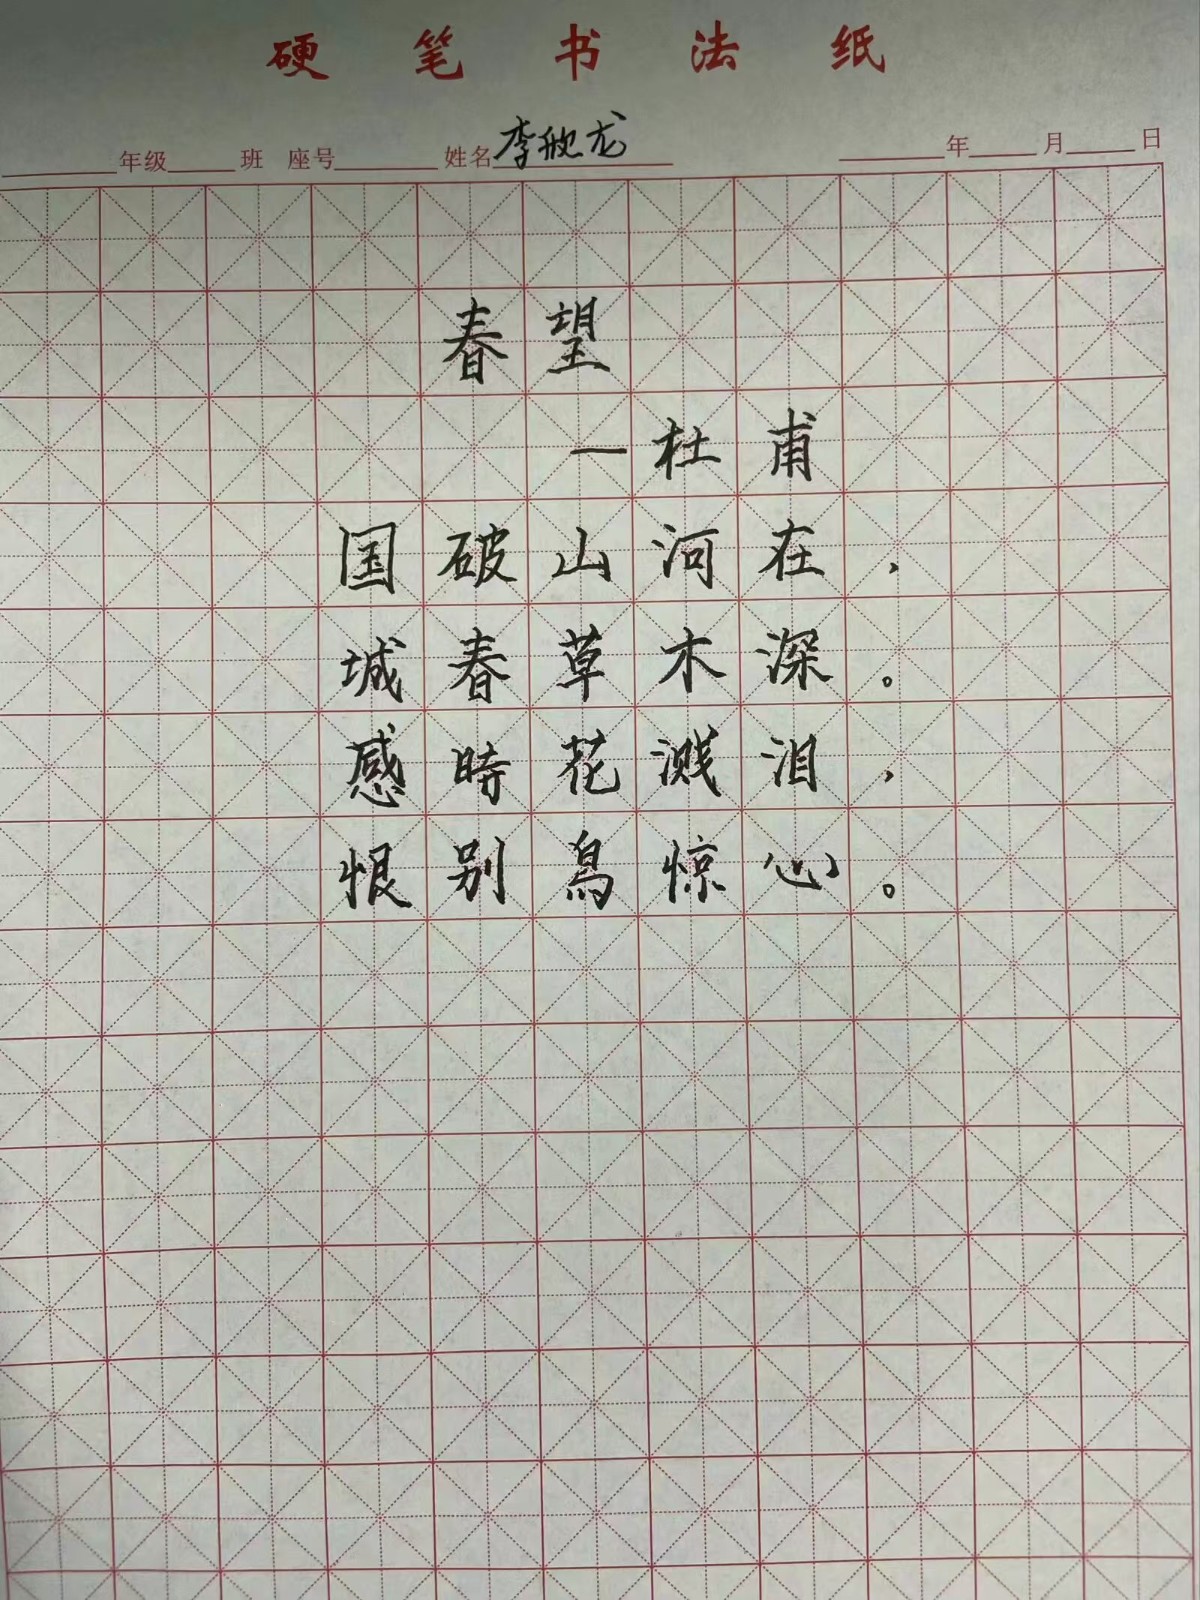 硬笔书法纸
年级 班 座号 姓名 李 龙 年 月 日
春望
—杜甫
国破山河在，
城春草木深。
感時花溅泪，
恨别鳥惊心。